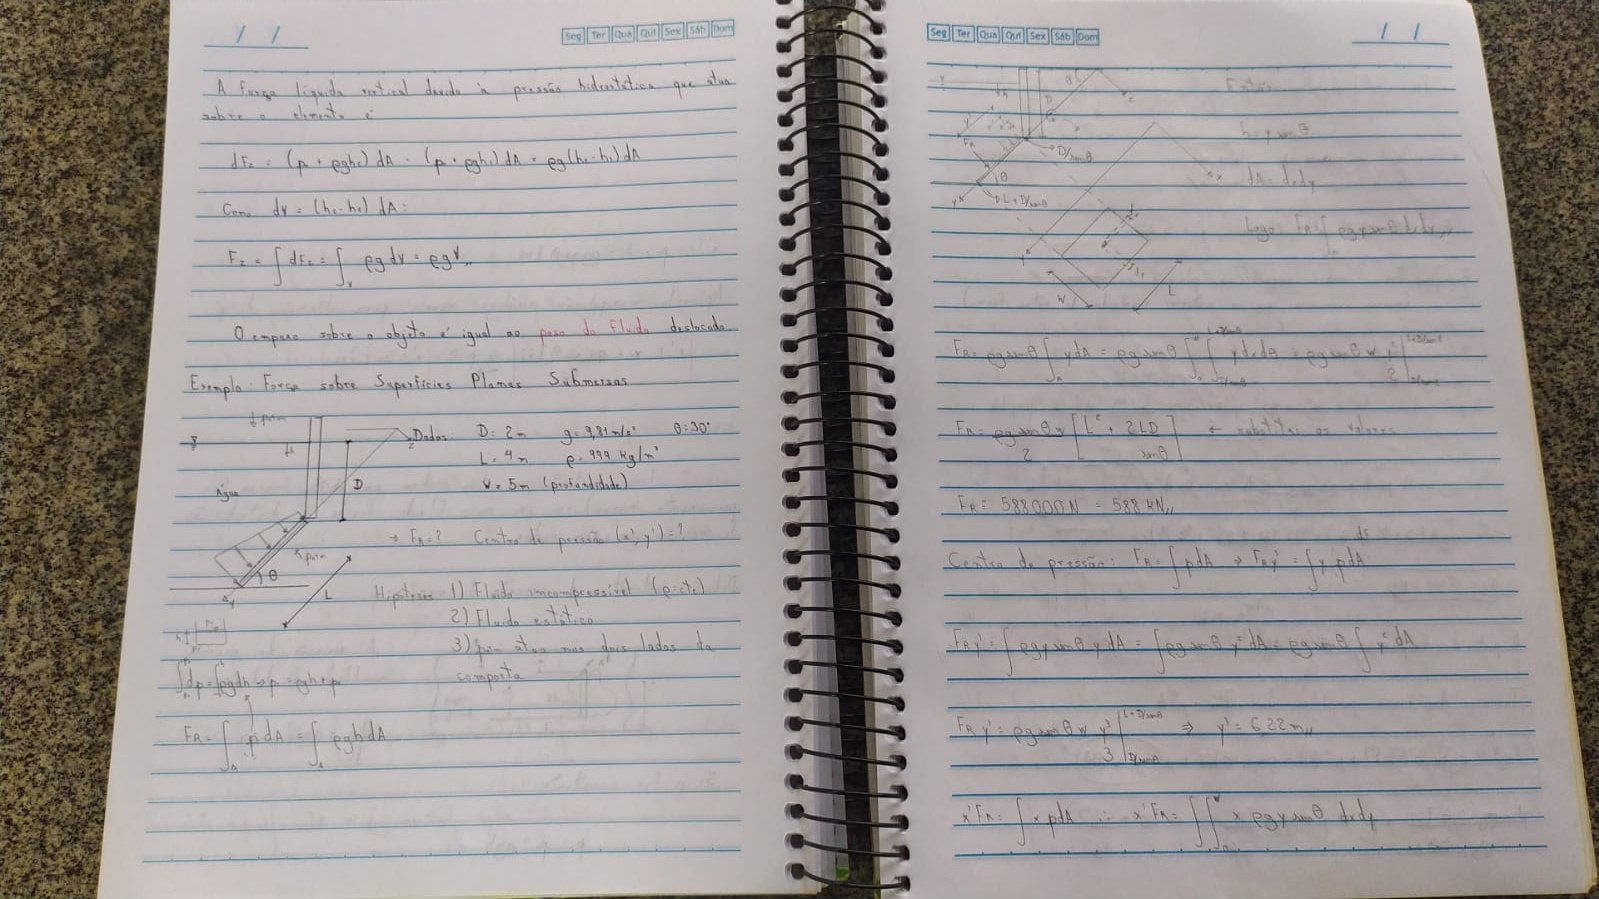 / /
Seg Ter Qua Qui Sex Sáb Dom
A força líquida vertical devido à pressão hidrostática que atua
sobre o elemento é
dFz = (p₀ + ρgh₂) dA - (p₀ + ρgh₁) dA = ρg(h₂-h₁) dA
Como dV = (h₂-h₁) dA:
Fz = ∫ dFz = ∫ᵥ ρg dV = ρgV,,
O empuxo sobre o objeto é igual ao peso do fluido deslocado
Exemplo: Força sobre Superfícies Planas Submersas
patm
h
Dados: D = 2m g = 9,81 m/s² θ = 30°
z
L = 4m ρ = 999 kg/m³
w = 5m (profundidade)
Água
D
→ FR = ? Centro de pressão (x', y') = ?
patm
θ
y
L
Hipóteses 1) Fluido imcompressível (ρ = cte)
2) Fluido estático
3) patm atua nos dois lados da
comporta
∫dp = ∫ρgdh ⇒ p = ρgh + p₀
FR = ∫A p dA = ∫A ρgh dA
Seg Ter Qua Qui Sex Sáb Dom
/ /
h
D
z
Então:
FR
D/senθ
h = y senθ
θ
y
L + D/senθ
x
dA = dxdy
Logo: FR = ∫A ρgy senθ dxdy,,
w
L
FR = ρg senθ ∫A y dA = ρg senθ ∫₀^w ∫_{D/senθ}^{L+D/senθ} y dxdθ = ρg senθ w y²/2 |_{D/senθ}^{L+D/senθ}
FR = ρg senθ w / 2 [L² + 2LD / senθ] ← substituir os valores
FR = 588000N = 588 kN,,
Centro de pressão: FR = ∫pdA ⇒ FR y' = ∫y pdA
dF
FR y' = ∫ρgy senθ y dA = ∫ρg senθ y² dA = ρg senθ ∫ y² dA
FR y' = ρg senθ w y³/3 |_{D/senθ}^{L+D/senθ} ⇒ y' = 6,22 m,,
x'FR = ∫ x pdA ∴ x'FR = ∫∫₀^w x ρgy senθ dxdy